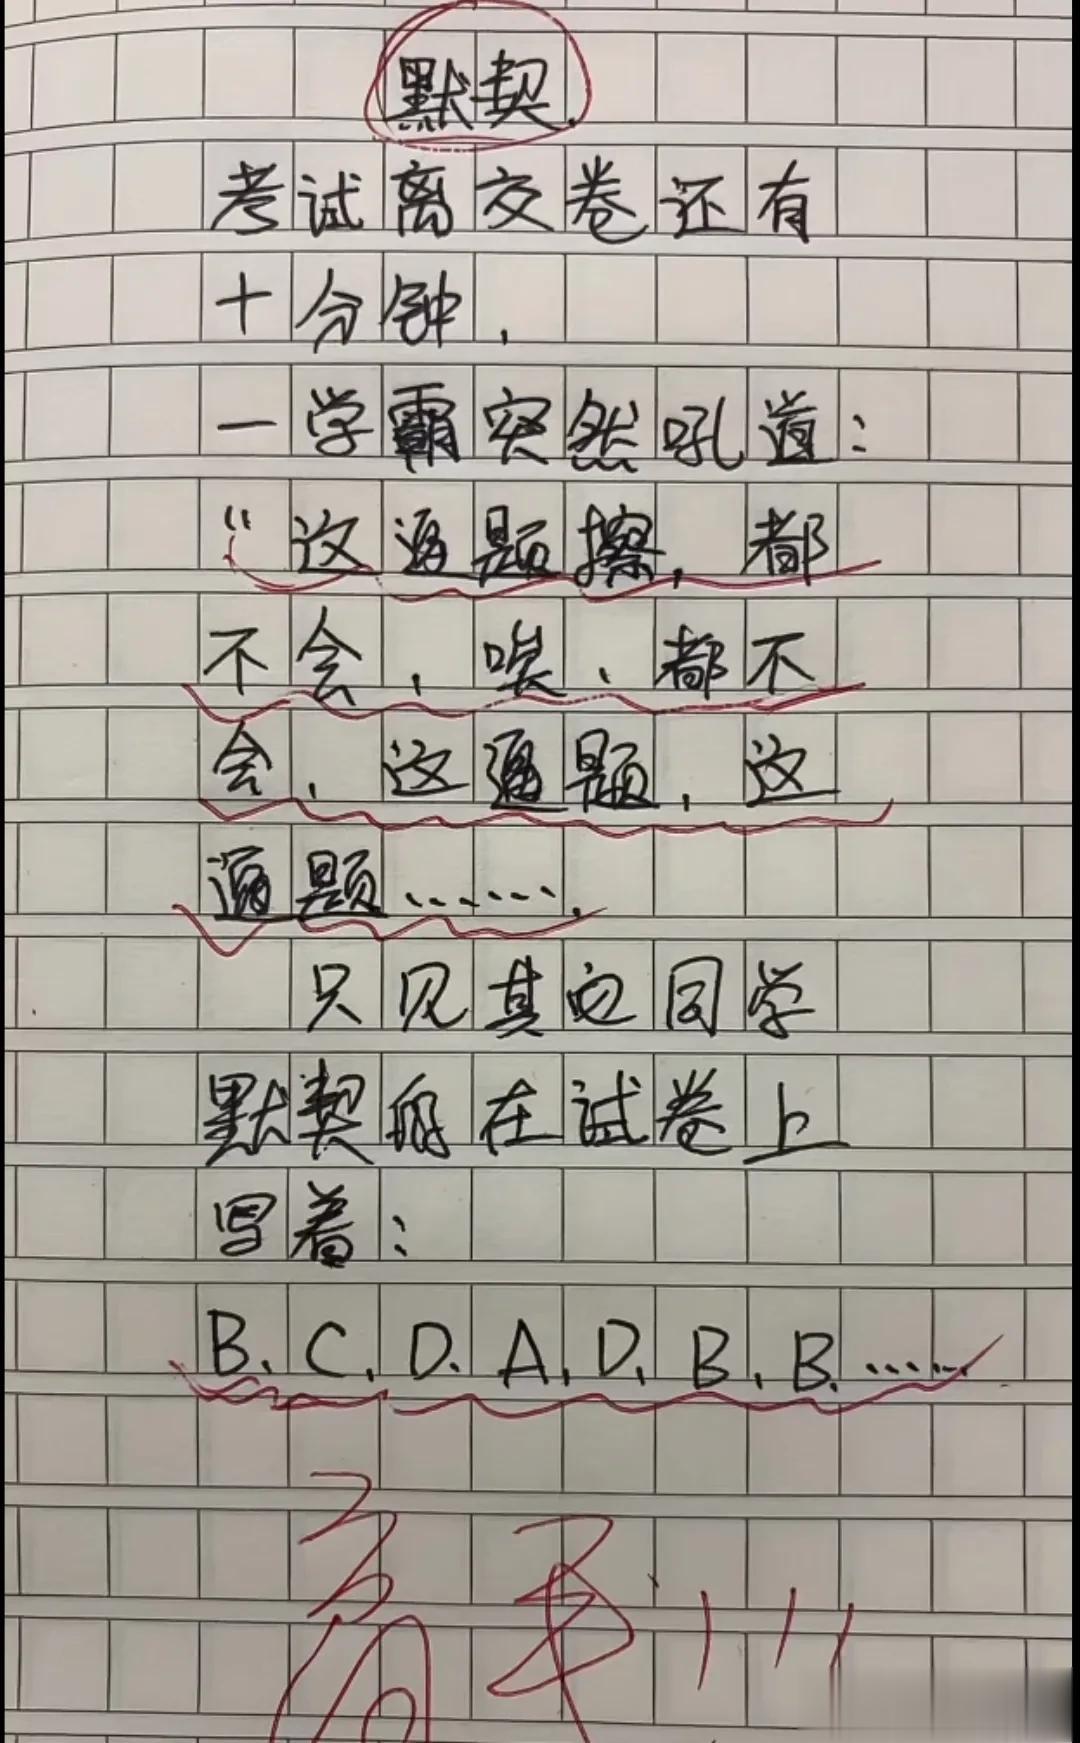 默契.
考试离交卷还有
十分钟,
一学霸突然吼道:
“这逼题擦,都
不会,唉、都不
会,这逼题,这
逼题…….
只见其它同学
默契的在试卷上
写着:
B.C.D.A.D.B.B.……